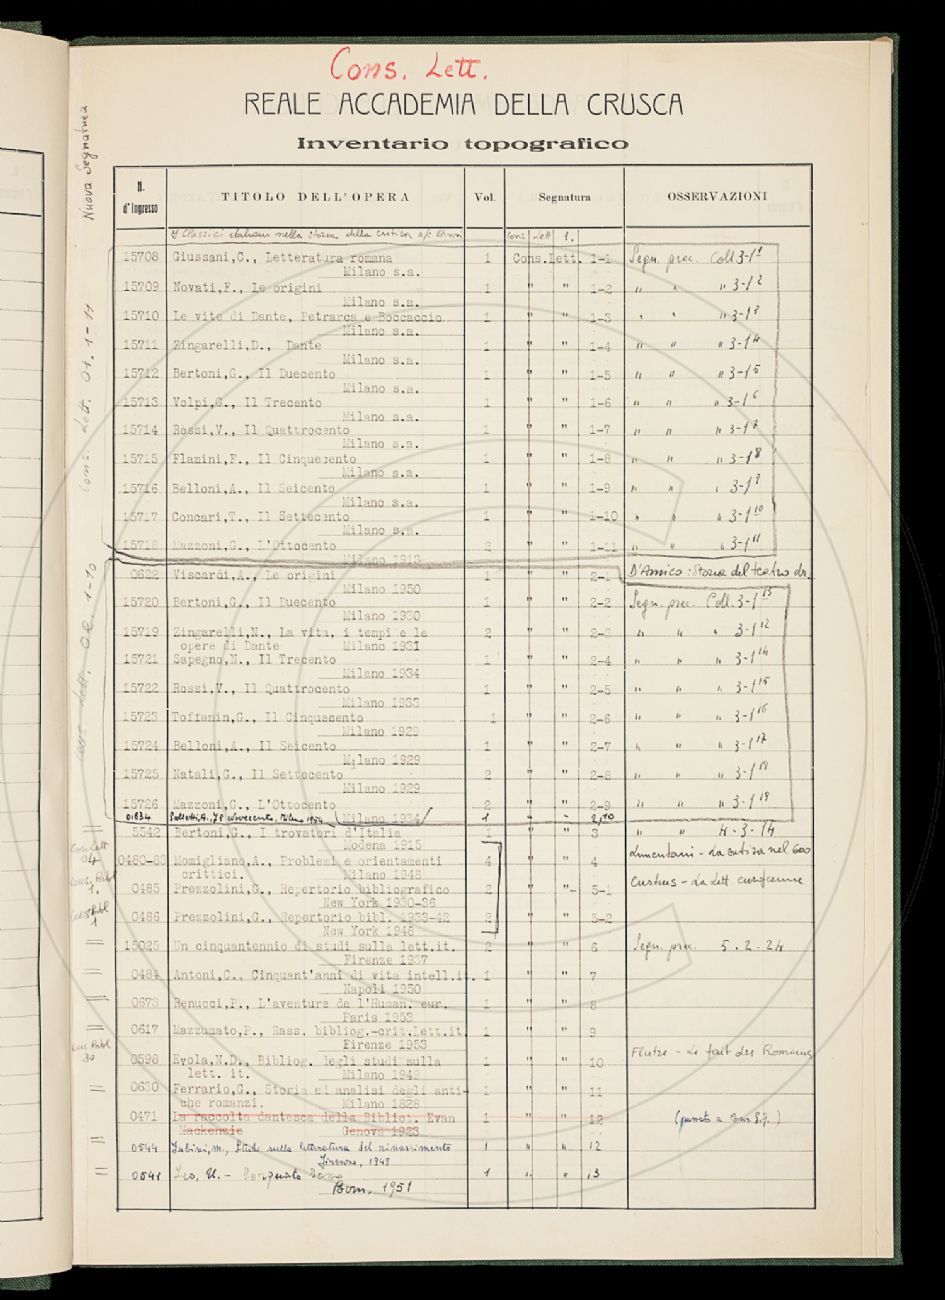 Cons. Lett.
REALE ACCADEMIA DELLA CRUSCA
Inventario topografico
Nuova Segnatura
N. d'Ingresso TITOLO DELL'OPERA Vol. Segnatura OSSERVAZIONI
I Classici italiani nella storia della critica Cons Lett 1.
15708 Giussani,C., Letteratura romana 1 Cons.Lett. 1-1 Segn. prec. Coll 3-1 1
Milano s.a.
15709 Novati,F., Le origini 1 " " 1-2 " " " 3-1 2
Milano s.a.
15710 Le vite di Dante, Petrarca e Boccaccio 1 " " 1-3 " " " 3-1 3
Milano s.a.
15711 Zingarelli,D., Dante 1 " " 1-4 " " " 3-1 4
Milano s.a.
15712 Bertoni,G., Il Duecento 1 " " 1-5 " " " 3-1 5
Milano s.a.
15713 Volpi,G., Il Trecento 1 " " 1-6 " " " 3-1 6
Milano s.a.
15714 Rossi,V., Il Quattrocento 1 " " 1-7 " " " 3-1 7
Milano s.a.
15715 Flamini,F., Il Cinquecento 1 " " 1-8 " " " 3-1 8
Milano s.a.
15716 Belloni,A., Il Seicento 1 " " 1-9 " " " 3-1 9
Milano s.a.
15717 Concari,T., Il Settecento 1 " " 1-10 " " " 3-1 10
Milano s.a.
15718 Mazzoni,G., L'Ottocento 2 " " 1-11 " " " 3-1 11
Milano 1913
Cons. Lett. 01. 1-11
0622 Viscardi,A., Le origini 1 " " 2-1 D'Amico: Storia del teatro dr.
Milano 1950
15720 Bertoni,G., Il Duecento 1 " " 2-2 Segn. prec. Coll. 3-1 13
Milano 1930
15719 Zingarelli,N., La vita, i tempi e le 2 " " 2-3 " " " 3-1 12
opere di Dante Milano 1931
15721 Sapegno,N., Il Trecento 1 " " 2-4 " " " 3-1 14
Milano 1934
15722 Rossi,V., Il Quattrocento 1 " " 2-5 " " " 3-1 15
Milano 1933
15723 Toffanin,G., Il Cinquecento 1 " " 2-6 " " " 3-1 16
Milano 1929
15724 Belloni,A., Il Seicento 1 " " 2-7 " " " 3-1 17
Milano 1929
15725 Natali,G., Il Settecento 2 " " 2-8 " " " 3-1 18
Milano 1929
15726 Mazzoni,G., L'Ottocento 2 " " 2-9 " " " 3-1 19
Milano 1934
Cons. Lett. 02. 1-10
01834 Galletti,A., Il Novecento, Milano 1954 1 " " 2,10
5542 Bertoni,G., I trovatori d'Italia 1 " " 3 " " 4-3-14
Modena 1915
Cons. Lett 04
0480-83 Momigliano,A., Problemi e orientamenti 4 " " 4
crittici. Milano 1948
Cons. Bibl 1.
0485 Prezzolini,G., Repertorio bibliografico 2 " "- 5-1
New York 1930-36
Cons Bibl 1
0486 Prezzolini,G., Repertorio bibl. 1933-42 2 " " 5-2
New York 1948
15025 Un cinquantennio di studi sulla lett.it. 2 " " 6 Segn. prec. 5.2.24
Firenze 1937
0484 Antoni,C., Cinquant'anni di vita intell.it. 1 " " 7
Napoli 1950
0673 Renucci,P., L'aventure de l'Human. eur. 1 " " 8
Paris 1953
0617 Mazzumato,P., Rass. bibliog.-crit.Lett.it 1 " " 9
Firenze 1953
Cons. Bibl 30
0598 Evola,N.D., Bibliog. degli studi sulla 1 " " 10
lett. it. Milano 1949
0630 Ferrario,G., Storia ed analisi degli anti- 1 " " 11
che romanzi. Milano 1828
0471 La raccolta dantesca della Bibliot. Evan 1 " " 12
Mackenzie Genova 1923
0544 Fubini, M., Studi sulla letteratura del rinascimento 1 " " 12
Firenze, 1948
0541 Leo, U. - Torquato Tasso 1 " " 13
Bern, 1951